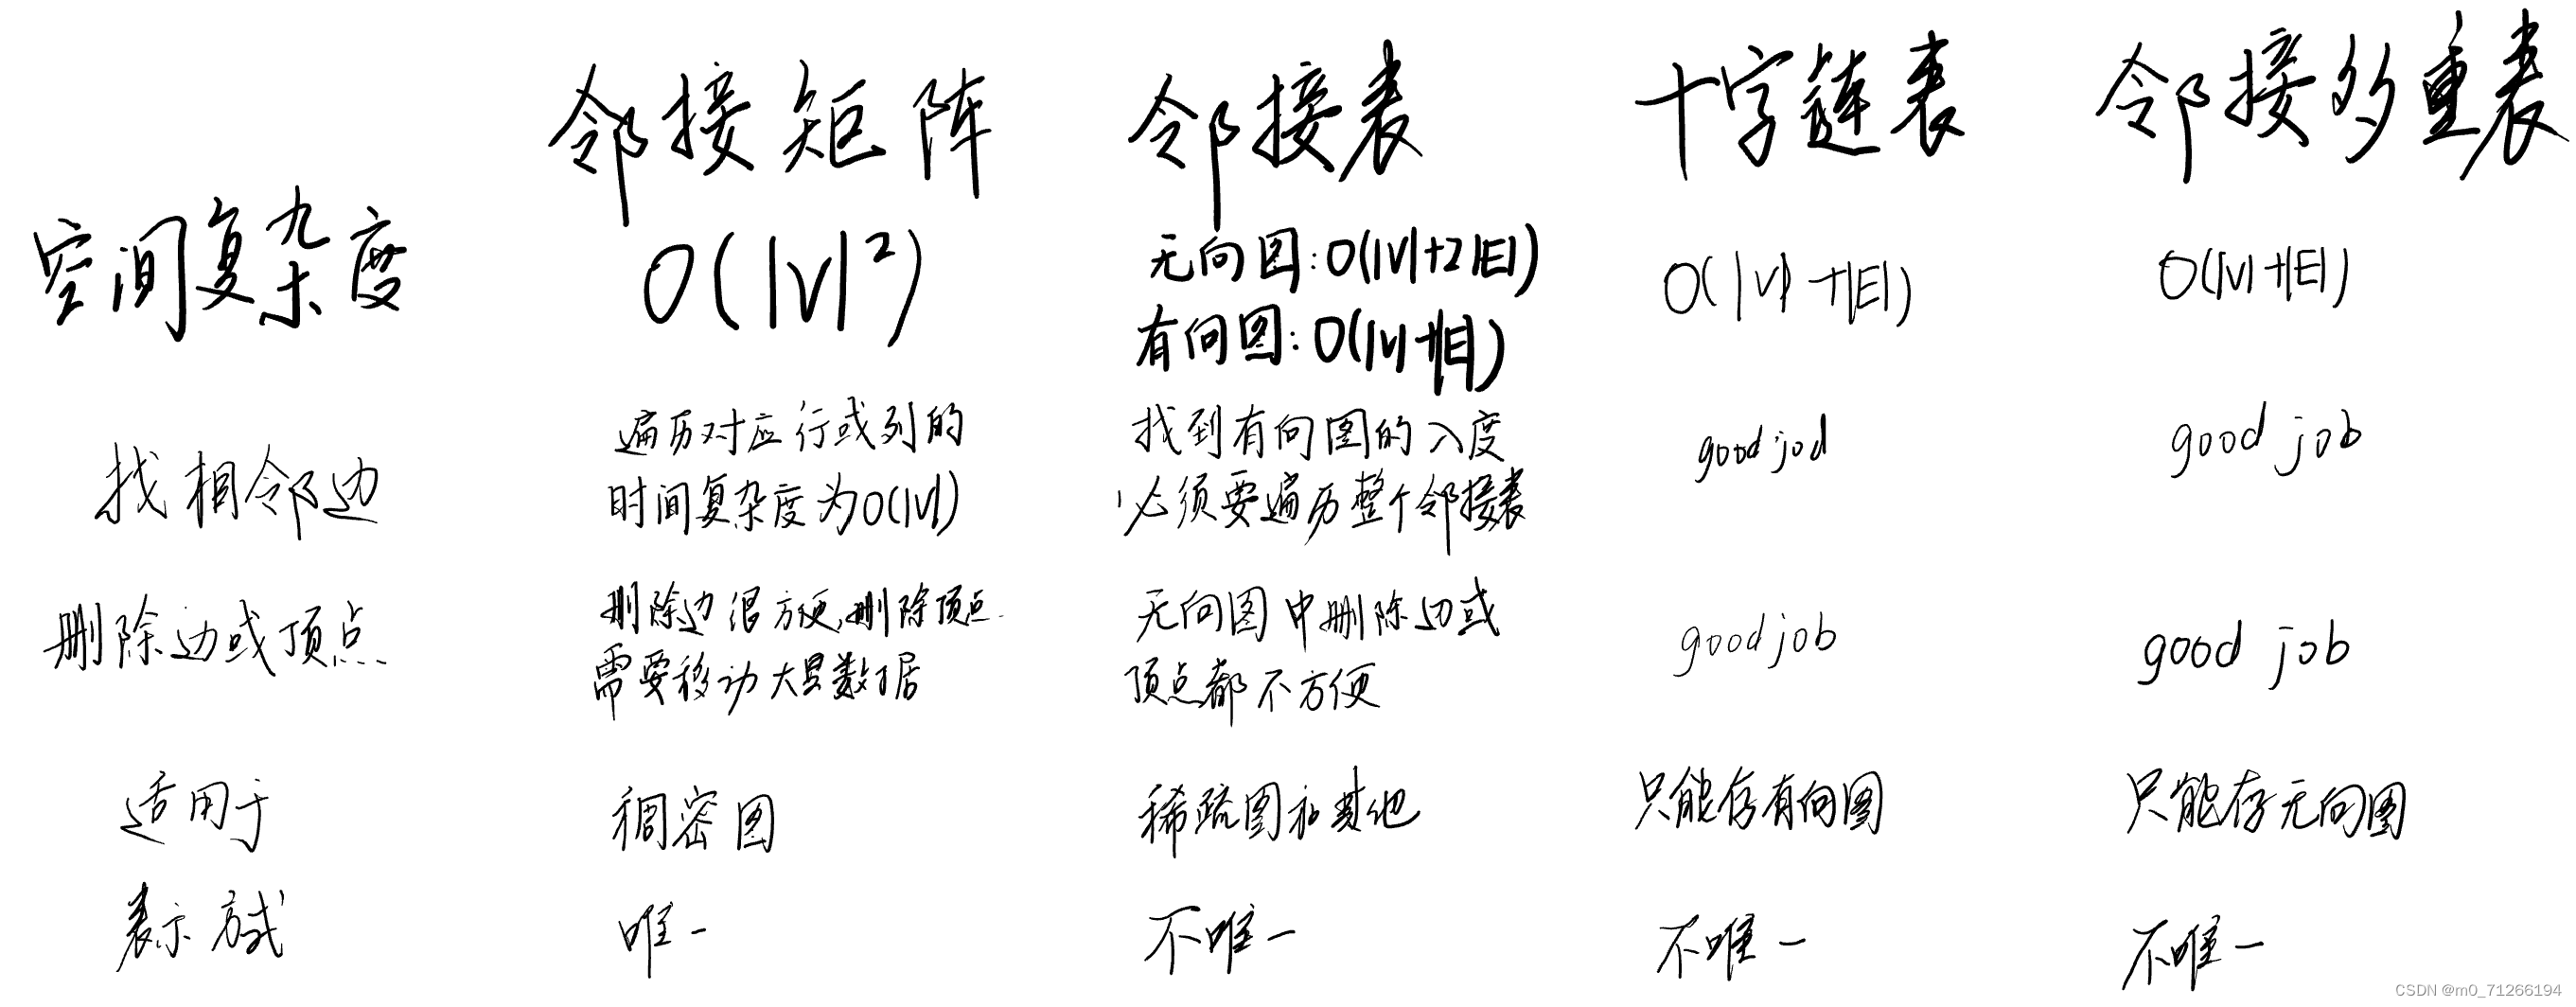 邻接矩阵 邻接表 十字链表 邻接多重表
空间复杂度 O(|V|²) 无向图:O(|V|+2|E|) O(|V|+|E|) O(|V|+|E|)
有向图:O(|V|+|E|)
找相邻边 遍历对应行或列的 找到有向图的入度 good jod good job
时间复杂度为O(|V|) 必须要遍历整个邻接表
删除边或顶点 删除边很方便,删除顶点 无向图中删除边或 good job good job
需要移动大量数据 顶点都不方便
适用于 稠密图 稀疏图和其他 只能存有向图 只能存无向图
表示方式 唯一 不唯一 不唯一 不唯一
CSDN @m0_71266194